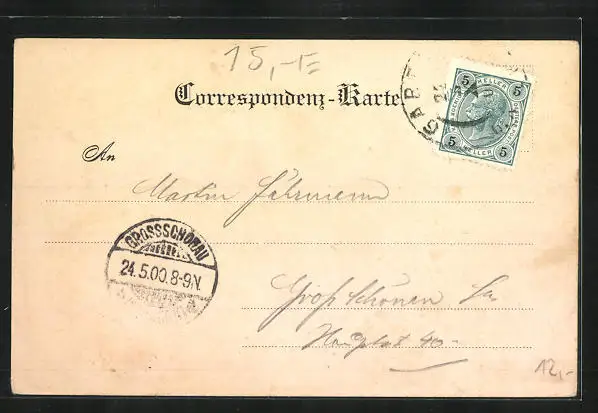 15,-
Correspondenz-Karte
5 HELLER 5
5 HELLER 5
An
Martin Führmann
GROSSSCHÖNAU
24.5.00.8-9N.
Großschönau Sa
Hauptst 40-
12,-